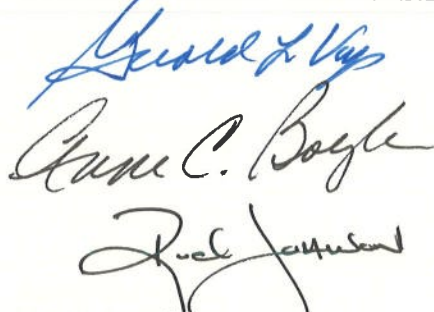 Gerald L Vap
Anne C. Boyle
Rod Johnson